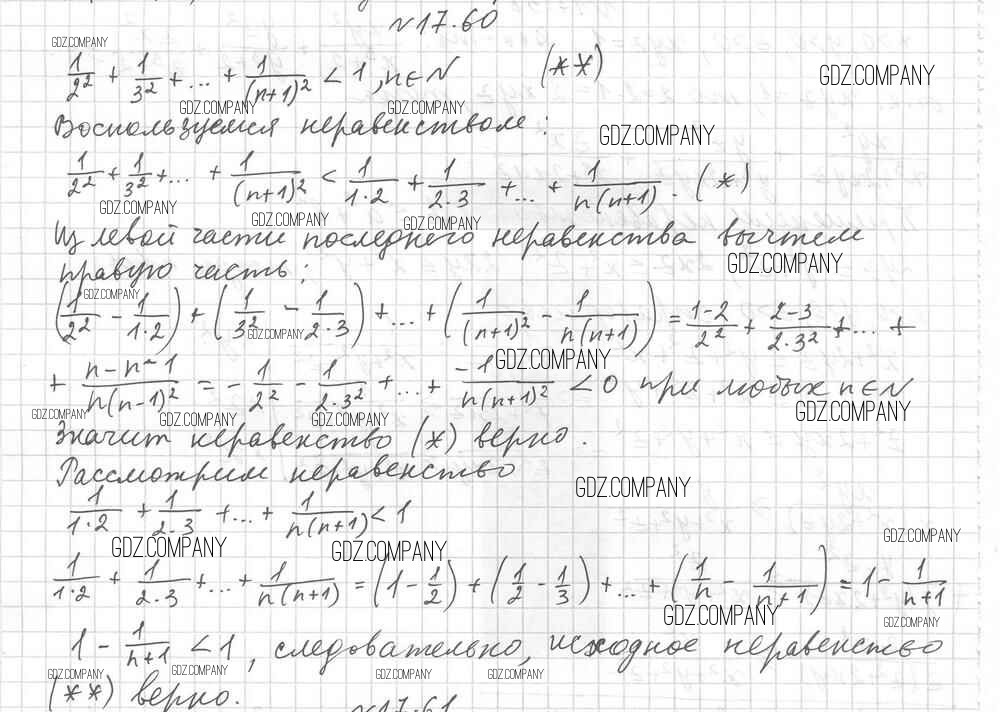 №17.60
GDZ.COMPANY
1/2² + 1/3² + ... + 1/(n+1)² < 1, n∈N (**)
GDZ.COMPANY
GDZ.COMPANY GDZ.COMPANY
Воспользуемся неравенством:
GDZ.COMPANY
1/2² + 1/3² + ... + 1/(n+1)² < 1/1·2 + 1/2·3 + ... + 1/n(n+1). (*)
GDZ.COMPANY GDZ.COMPANY GDZ.COMPANY
Из левой части последнего неравенства вычтем
GDZ.COMPANY
правую часть:
GDZ.COMPANY
(1/2² - 1/1·2) + (1/3² - 1/2·3) + ... + (1/(n+1)² - 1/n(n+1)) = 1-2/2² + 2-3/2·3² + ... +
GDZ.COMPANY
GDZ.COMPANY
+ n-n-1/n(n-1)² = - 1/2² - 1/2·3² + ... + -1/n(n+1)² < 0 при любых n∈N
GDZ.COMPANY GDZ.COMPANY GDZ.COMPANY GDZ.COMPANY
Значит неравенство (*) верно.
Рассмотрим неравенство
GDZ.COMPANY
1/1·2 + 1/2·3 + ... + 1/n(n+1) < 1
GDZ.COMPANY GDZ.COMPANY GDZ.COMPANY
1/1·2 + 1/2·3 + ... + 1/n(n+1) = (1 - 1/2) + (1/2 - 1/3) + ... + (1/n - 1/n+1) = 1 - 1/n+1
GDZ.COMPANY GDZ.COMPANY
1 - 1/n+1 < 1, следовательно, исходное неравенство
GDZ.COMPANY GDZ.COMPANY GDZ.COMPANY GDZ.COMPANY
(**) верно.
№17.61